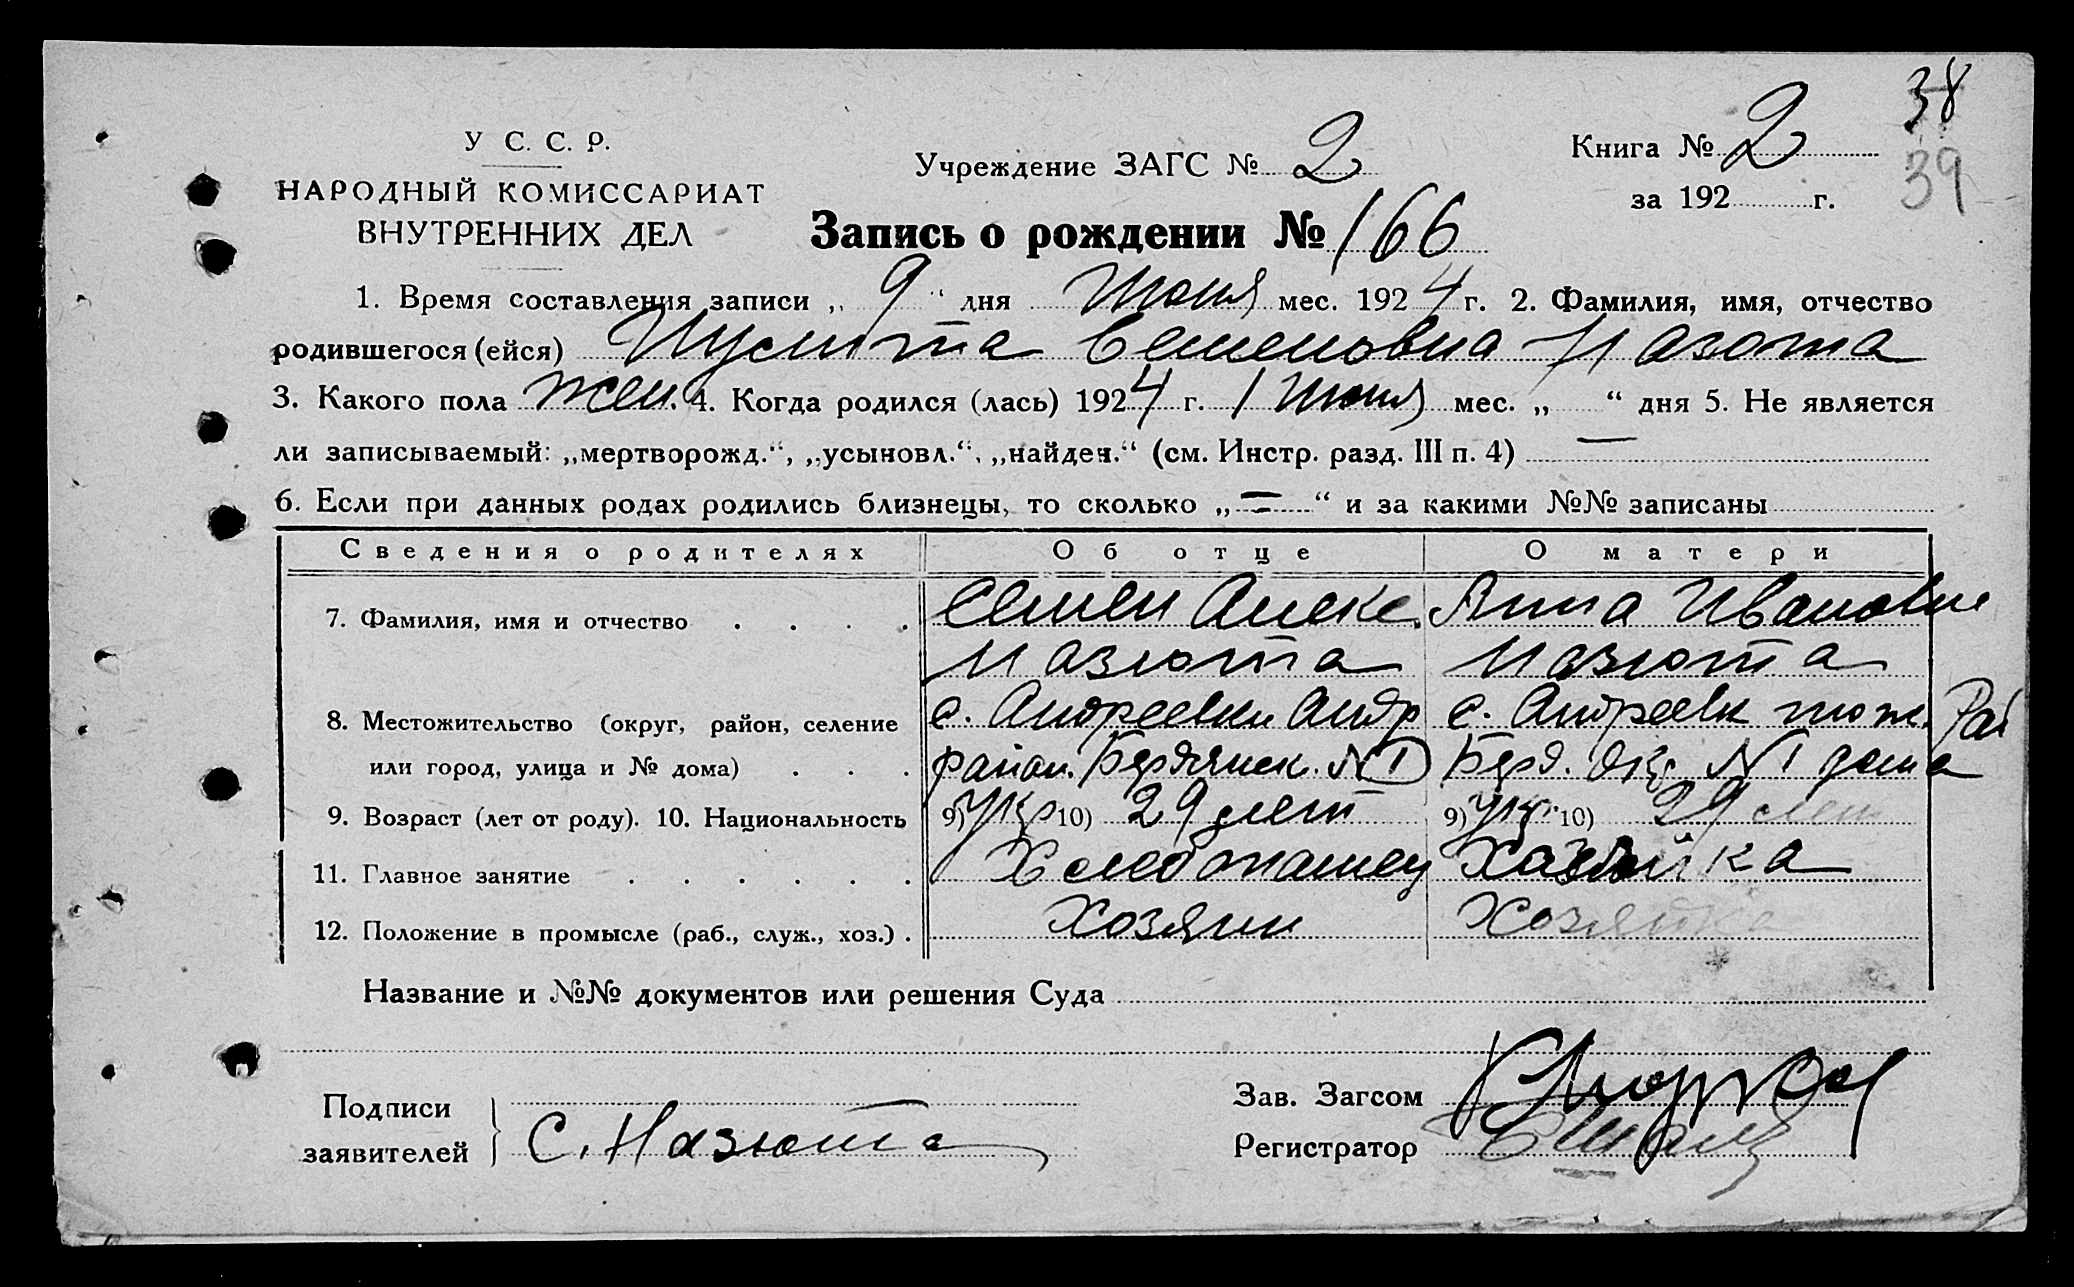 38
39
У С. С. Р.
НАРОДНЫЙ КОМИССАРИАТ
ВНУТРЕННИХ ДЕЛ
Учреждение ЗАГС № 2
Книга № 2
за 192 г.
Запись о рождении № 166
1. Время составления записи „ 9 “ дня Июня мес. 1924 г. 2. Фамилия, имя, отчество
родившегося (ейся) Семеновна Назюта
3. Какого пола жен. 4. Когда родился (лась) 1924 г. 1 Июня мес. „ “ дня 5. Не является
ли записываемый: „мертворожд.“, „усыновл.“, „найден.“ (см. Инстр. разд. III п. 4) —
6. Если при данных родах родились близнецы, то сколько „ = “ и за какими №№ записаны
Сведения о родителях Об отце О матери
7. Фамилия, имя и отчество Семен Алекс. Анна Ивановна
Назюта Назюта
8. Местожительство (округ, район, селение с. Андреевки Андр с. Андреевк тож. Рай
или город, улица и № дома) район. Бердянск. N 1 Берд. окр. N 1 дома
9. Возраст (лет от роду). 10. Национальность 9) Укр 10) 29 лет 9) Укр 10) 29 лет
11. Главное занятие Хлебопашец Хозяйка
12. Положение в промысле (раб., служ., хоз.) . Хозяин Хозяйка
Название и №№ документов или решения Суда
Подписи
заявителей С. Назюта
Зав. Загсом
Регистратор